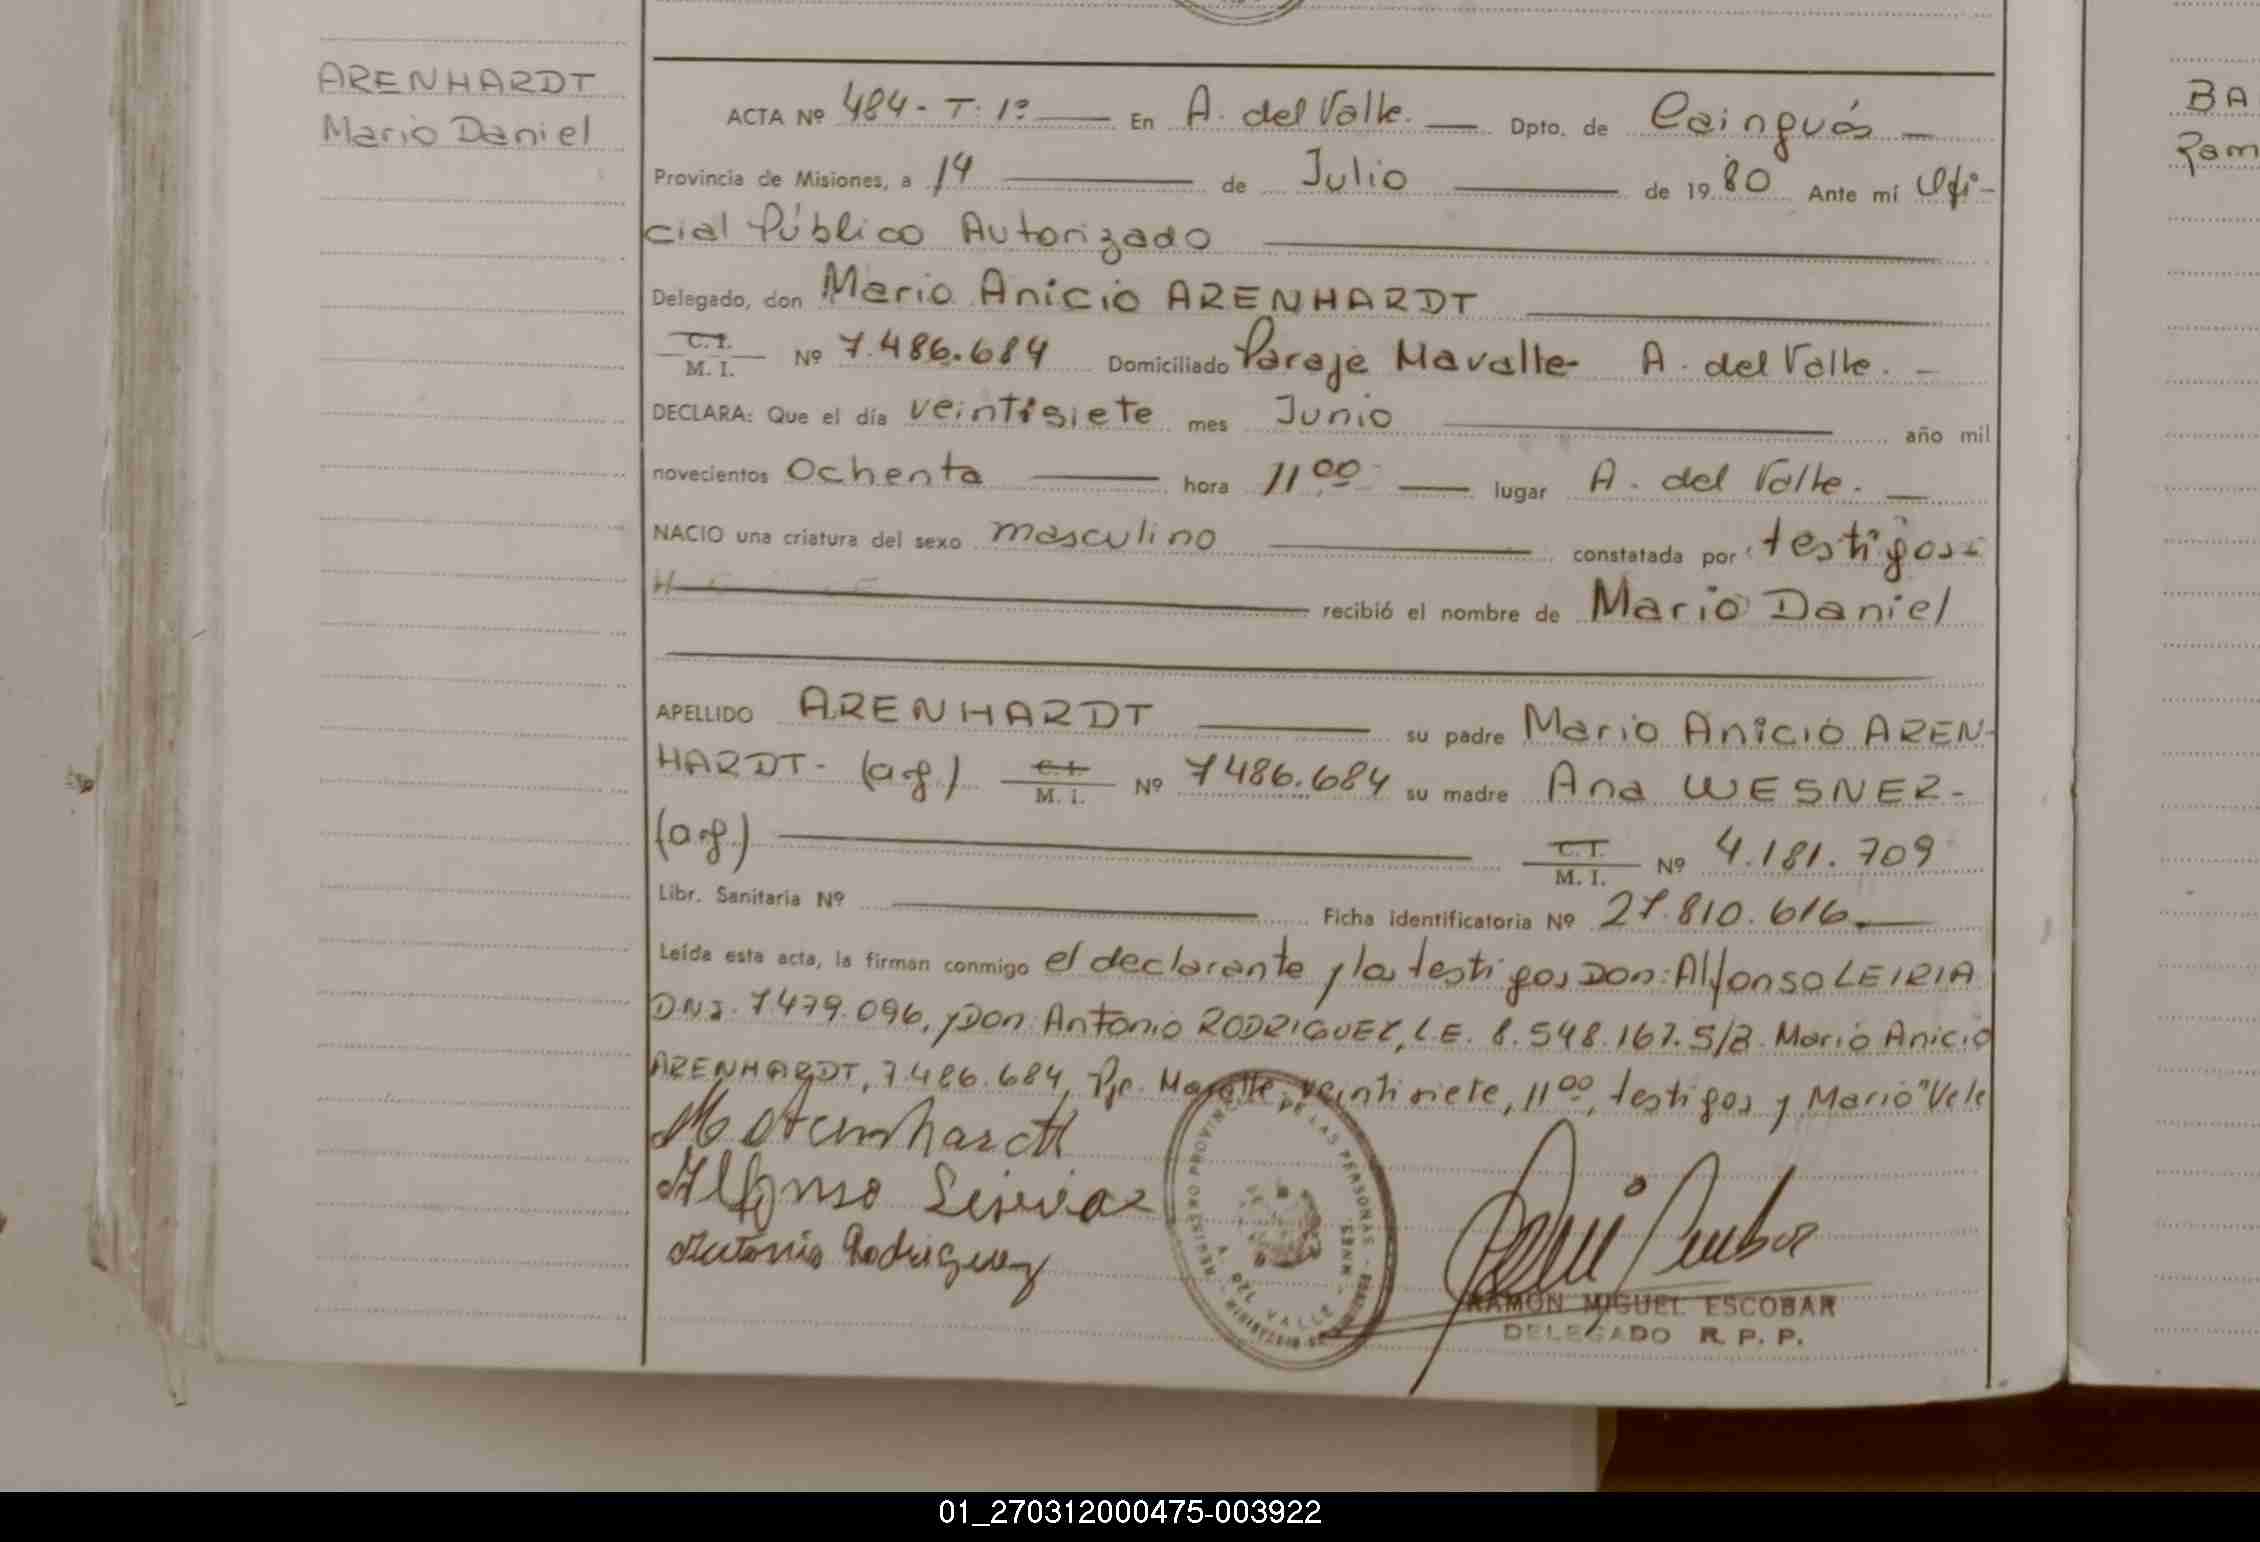 ARENHARDT
Mario Daniel
ACTA Nº 484 - T. 1º — En A. del Valle. — Dpto. de Cainguás —
Provincia de Misiones, a 14 — de Julio — de 1980 Ante mí Ofi-
cial Público Autorizado
Delegado, don Mario Anicio ARENHARDT
C. I.
M. I. Nº 7.486.684 Domiciliado Paraje Mavalle A. del Valle. -
DECLARA: Que el día veintisiete mes Junio — año mil
novecientos ochenta — hora 11,00 — lugar A. del Valle. —
NACIO una criatura del sexo masculino — constatada por testigos-
recibió el nombre de Mario Daniel
APELLIDO ARENHARDT — su padre Mario Anicio AREN-
HARDT - (arg.) C. I. M. I. Nº 7486.684 su madre Ana WESNER -
(arg.) — C. I. M. I. Nº 4.181.709
Libr. Sanitaria Nº — Ficha identificatoria Nº 27.810.616. —
Leída esta acta, la firman conmigo el declarante y los testigos Don: Alfonso LEIRIA
D.N.I. 7.479.096, y Don: Antonio RODRIGUEZ, L.E. 8.548.167. S/B. Mario Anicio
ARENHARDT, 7.486.684, Pje. Mavalle, veintisiete, 11,00, testigos y Mario "Vale
M Arenhardt
Alfonso Leiria
Antonio Rodriguez
REGISTRO PROVINCIAL DE LAS PERSONAS
A. DEL VALLE
MNES.
RAMON MIGUEL ESCOBAR
DELEGADO R. P. P.
BA
Ram
01_270312000475-003922